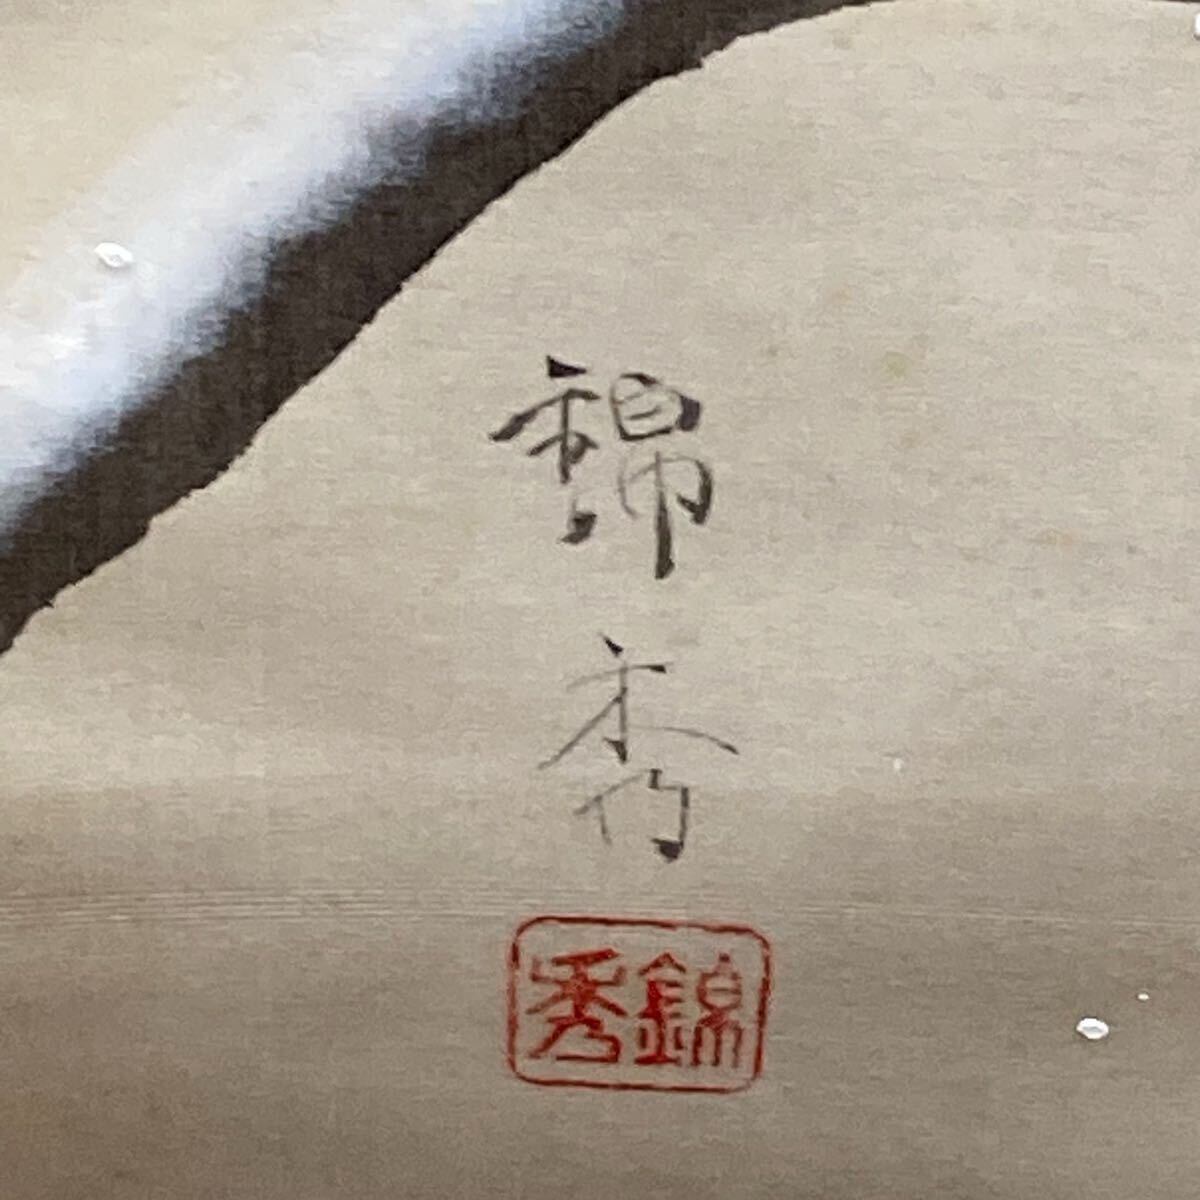 錦秀
錦秀